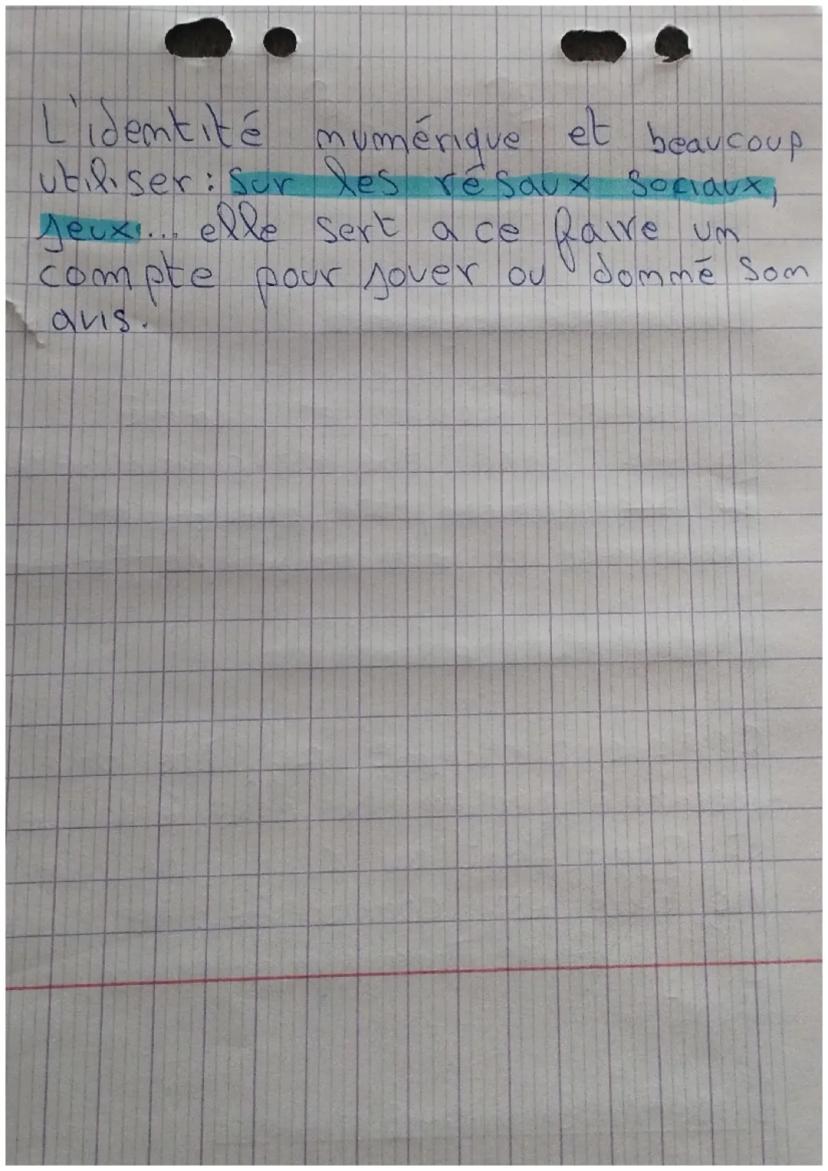 L'identité numérique et beaucoup
utiliser : sur les résaux sociaux,
jeux... elle sert a ce faire un
compte pour jouer ou donné son
avis.